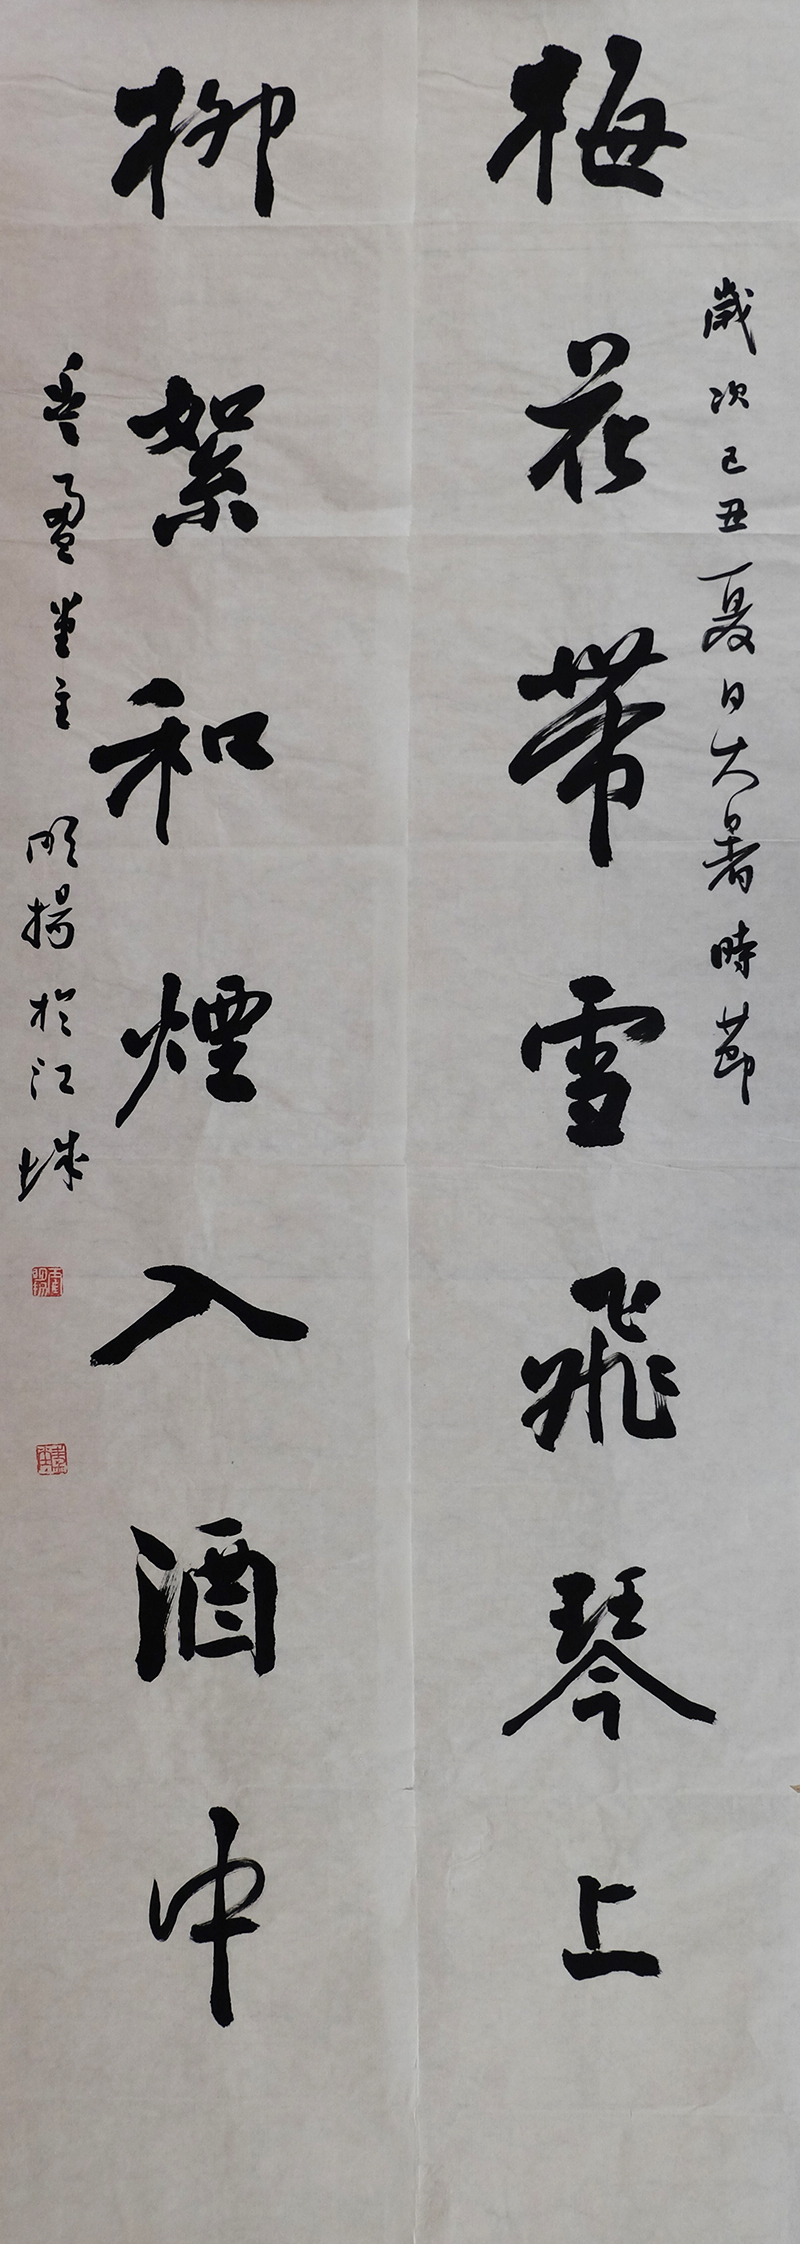 歲次己丑夏日大暑時節
梅花帶雪飛琴上
柳絮和煙入酒中
盈堂主
揚於江城